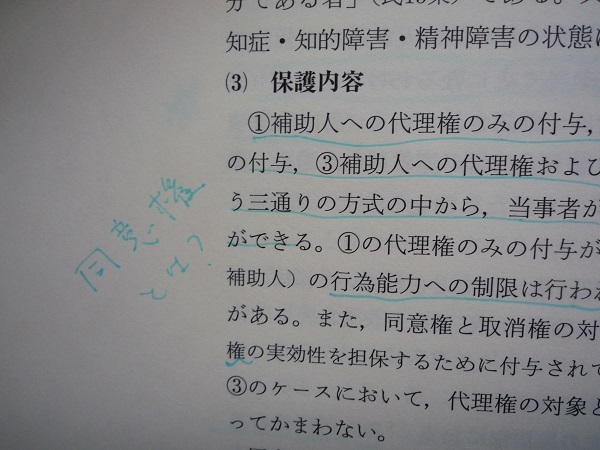 分である者」(民15条)である。
知症・知的障害・精神障害の状態に
⑶ 保護内容
①補助人への代理権のみの付与,
の付与, ③補助人への代理権およ
う三通りの方式の中から, 当事者が
ができる。①の代理権のみの付与が
補助人）の行為能力への制限は行わ
がある。また, 同意権と取消権の対
権の実効性を担保するために付与されて
③のケースにおいて, 代理権の対象と
ってかまわない。
同意権
とは？